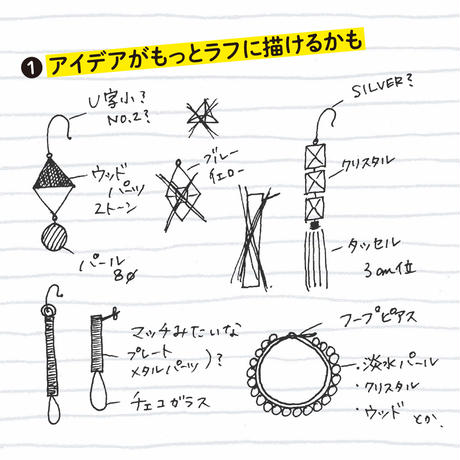 ❶ アイデアがもっとラフに描けるかも
U字小?
NO.2?
ウッド
パーツ
2トーン
パール
8φ
ブルー
イエロー
SILVER?
クリスタル
タッセル
3cm位
マッチみたいな
プレート
メタルパーツ)?
チェコガラス
フープピアス
・淡水パール
・クリスタル
・ウッド とか